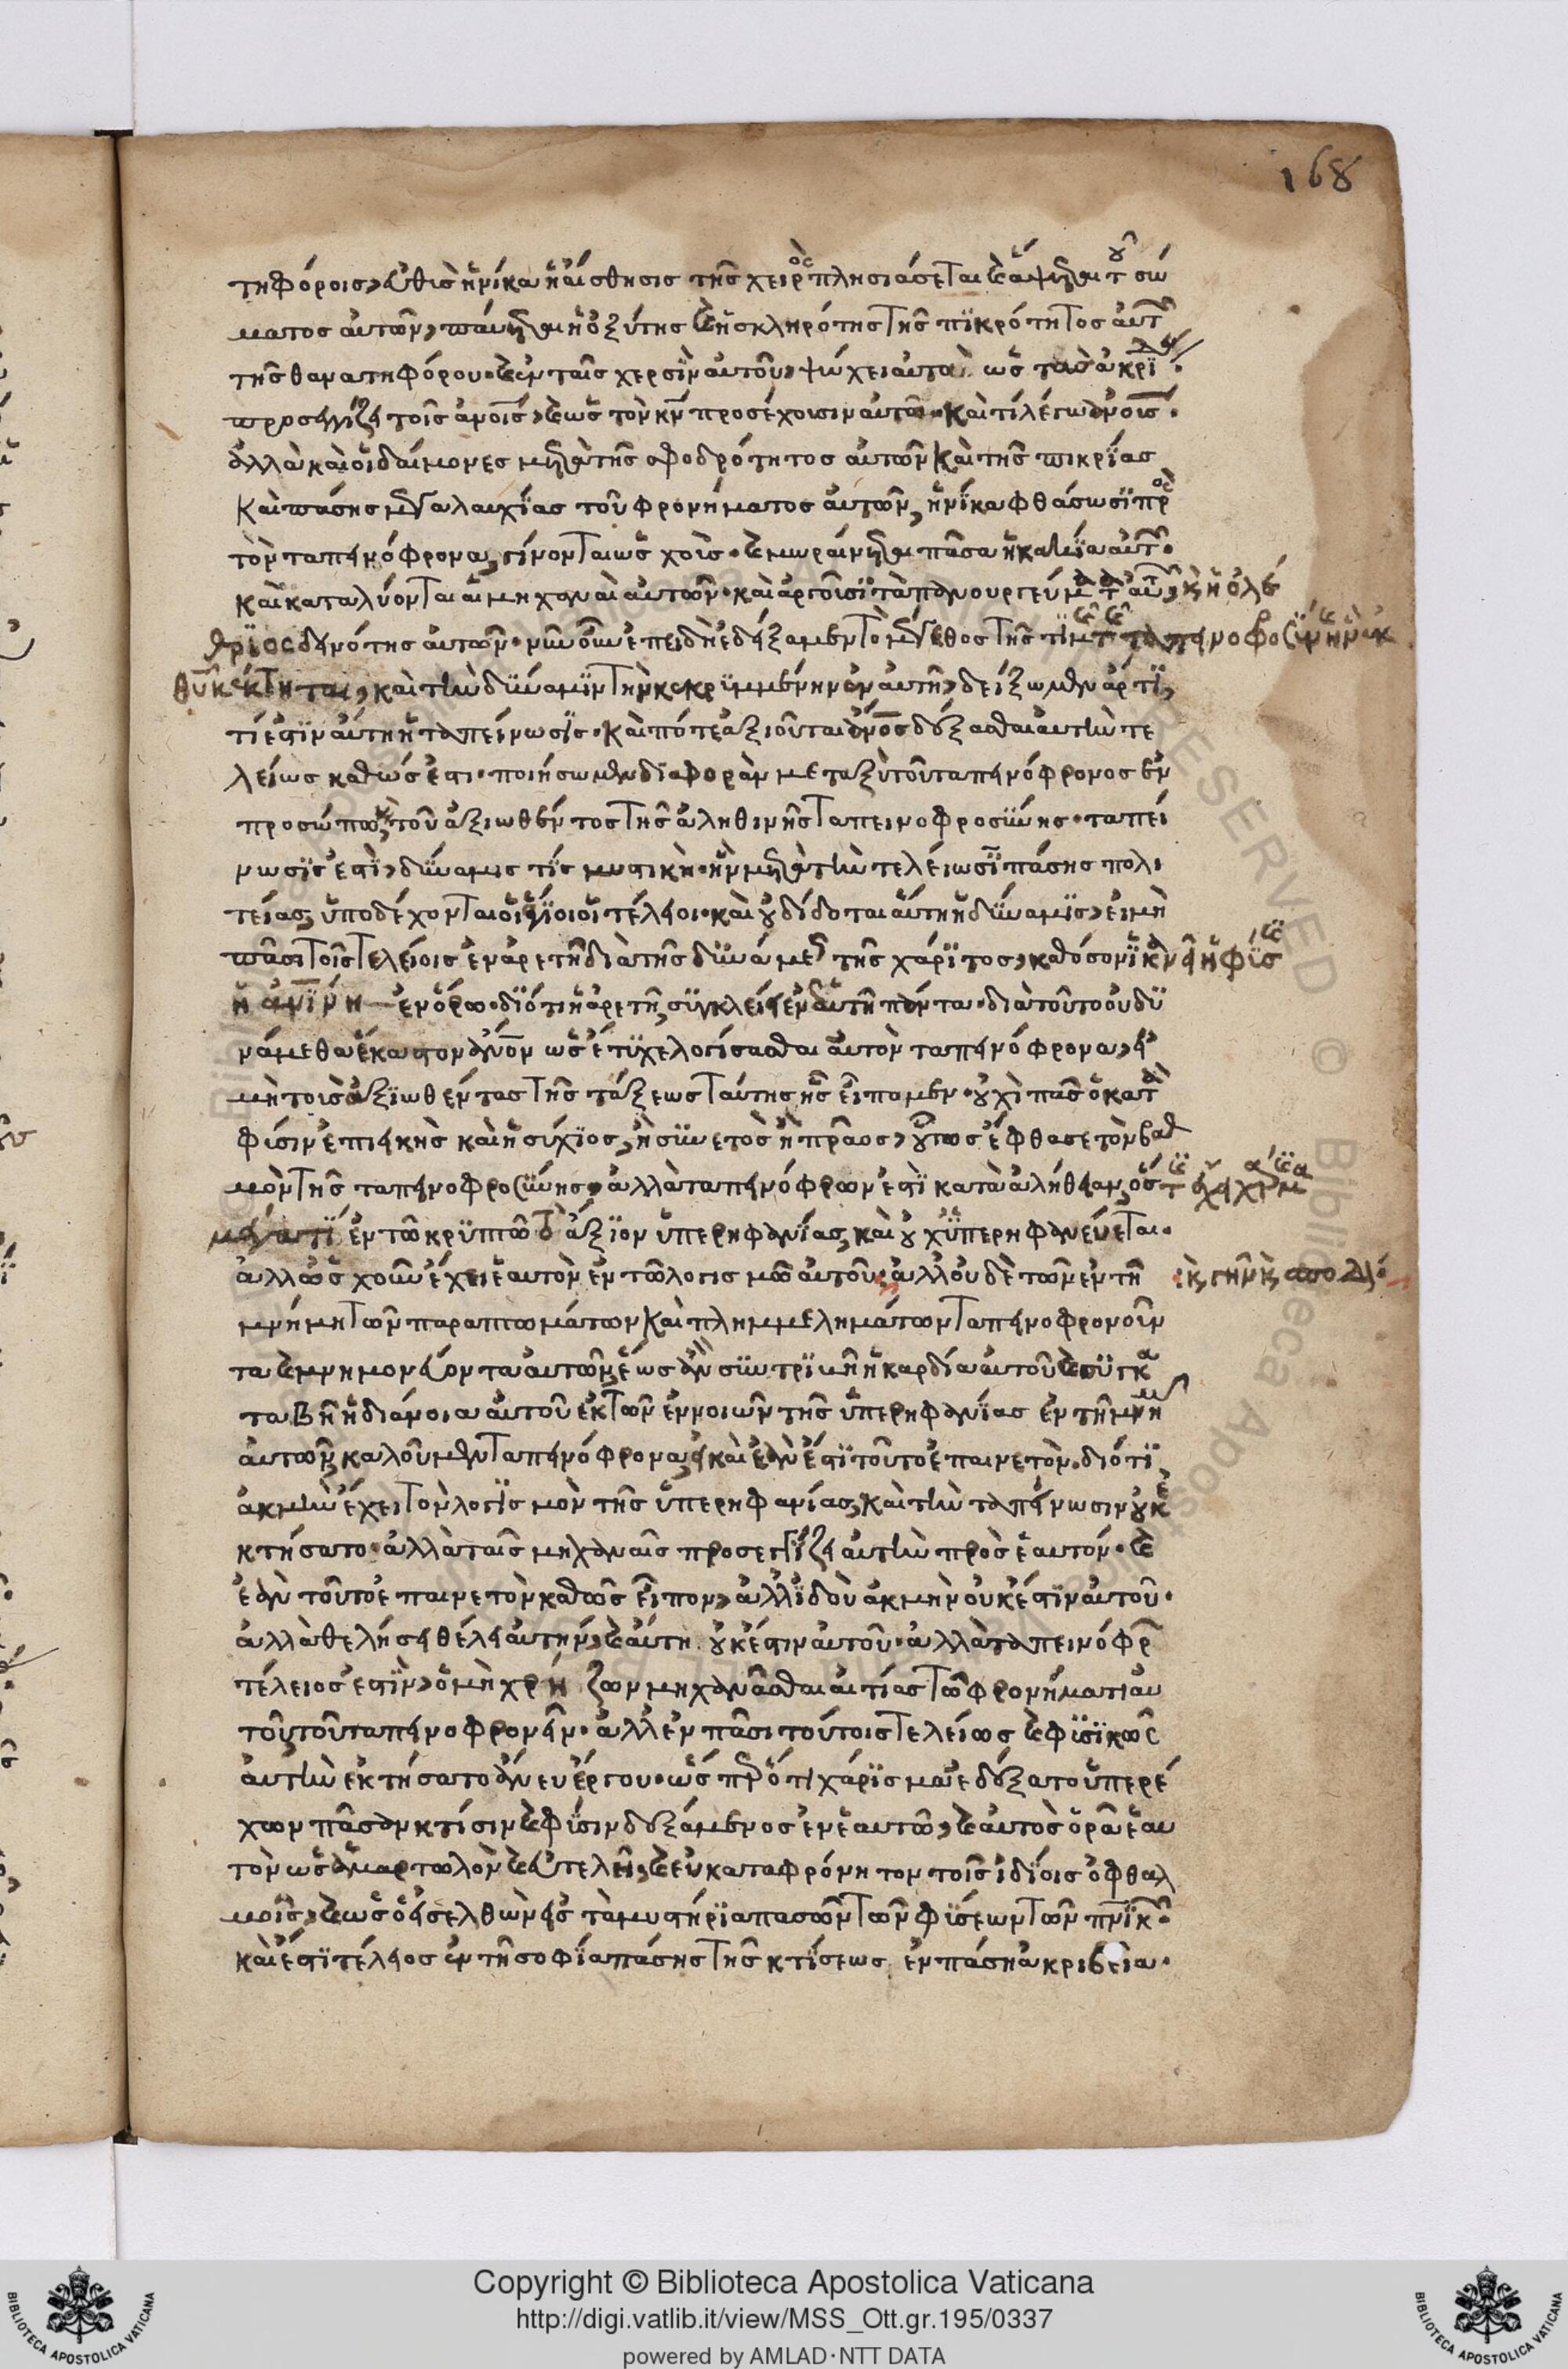 168
τηφόροις, εὐθὺς ἡνίκα ἡ αἴσθησις τῆς χειρὸς πλησιάσεται καὶ ἅψηται τοῦ σώ
ματος αὐτῶν, παύεται ἡ ὀξύτης καὶ ἡ σκληρότης τῆς πικρότητος αὐτ
τῆς θανατηφόρου. καὶ ἐν ταῖς χερσὶν αὐτοῦ, ψύχει αὐτὰ ὡς τὰς ἀκρί
προσεγγίζει τοῖς ἀνοις, καὶ ὡς τὸν κν προσέχουσιν αὐτῶ. καὶ τί λέγω ἀνοις.
ἀλλὰ καὶ οἱ δαίμονες μετὰ τῆς σφοδρότητος αὐτῶν καὶ τῆς πικρίας
καὶ πάσης μεγαλαυχίας τοῦ φρονήματος αὐτῶν, ἡνίκα φθάσωσι πρὸς
τὸν ταπεινόφρονα, γίνονται ὡς χοῦς. καὶ μωραίνεται πᾶσα ἡ κακία αὐτ.
καὶ καταλύονται αἱ μηχαναὶ αὐτῶν. καὶ ἀργοῦσι τὰ πανουργεύματα αὐτ, καὶ ἡ ὀλέ
θριος δεινότης αὐτῶν. νῦν οὖν ἐπειδὴ ἐδείξαμεν τὸ μέγεθος τῆς τιμῆς τῆς ταπεινοφροσύνης ἣν ἐκ
θυ κέκτηται, καὶ τὴν δύναμιν τὴν κεκρυμμένην ἐν αὐτῇ, δείξωμεν ἄρτι,
τί ἐστιν αὕτη ἡ ταπείνωσις. καὶ πότε ἀξιοῦται ἀνος δέξασθαι αὐτὴν τε
λείως καθώς ἐστι. ποιήσωμεν διαφορὰν μεταξὺ τοῦ ταπεινόφρονος ἐν
προσώπω, καὶ τοῦ ἀξιωθέντος τῆς ἀληθινῆς ταπεινοφροσύνης. ταπεί
νωσίς ἐστι, δύναμίς τις μυστικὴ. ἣν μετὰ τὴν τελείωσιν πάσης πολι
τείας, ὑποδέχονται οἱ ἅγιοι οἱ τέλειοι. καὶ οὐ δίδοται αὕτη ἡ δύναμις, εἰ μὴ
πᾶσι τοῖς τελείοις ἐν ἀρετῇ διὰ τῆς δυνάμεως τῆς χάριτος, καθόσον ἱκνεῖ ἡ φύσις
ἡ ἀνίνη ἐν ὅρω. διότι ἡ ἀρετὴ, συγκλείει ἐν ἑαυτῇ πάντα. διὰ τοῦτο οὐ δυ
νάμεθα ἕκαστον ἀνον ὡς ἔτυχε λογίσασθαι αὐτὸν ταπεινόφρονα, εἰ
μὴ τοὺς ἀξιωθέντας τῆς τάξεως ταύτης ἧς εἴπομεν. οὐχὶ πᾶς ὁ κατὰ
φύσιν ἐπιεικὴς καὶ ἡσύχιος, ἢ συνετὸς ἢ πρᾶος, οὗτος ἔφθασε τὸν βαθ
μὸν τῆς ταπεινοφροσύνης, ἀλλὰ ταπεινόφρων ἐστὶ κατὰ ἀλήθειαν, ὅστις ἔχει
ἐν τῶ κρυπτῶ τὸ ἄξιον ὑπερηφανίας, καὶ οὐχ ὑπερηφανεύεται.
ἀλλ᾽ ὡς χοῦν ἔχει ἑαυτὸν ἐν τῶ λογισμῶ αὐτοῦ. ἀλλ᾽ οὐδὲ τῶν ἐν τῇ
μνήμη τῶν παραπτωμάτων καὶ πλημμελημάτων ταπεινοφρονοῦν
τα καὶ μνημονεύοντα αὐτῶν, ἕως ἂν συντριβῇ ἡ καρδία αὐτοῦ καὶ συγκα
ταβῇ ἡ διάνοια αὐτοῦ ἐκ τῶν ἐννοιῶν τῆς ὑπερηφανίας ἐν τῇ μνήμ
αὐτῶν, καλοῦμεν ταπεινόφρονα, εἰ καὶ ἐὰν ἔστι τοῦτο ἐπαινετὸν. διότι
ἀκμὴν ἔχει τὸν λογισμὸν τῆς ὑπερηφανίας, καὶ τὴν ταπείνωσιν οὐκ ἐ
κτήσατο. ἀλλὰ ταῖς μηχαναῖς προσεγγίζει αὐτὴν πρὸς ἑαυτόν. καὶ
ἐὰν τοῦτο ἐπαινετὸν καθὼς εἶπον, ἀλλ᾽ ἰδοὺ ἀκμὴν οὐκ ἔστιν αὐτοῦ.
ἀλλὰ θελήσει θέλει αὐτήν, καὶ αὕτη οὐκ ἔστιν αὐτοῦ. ἀλλὰ ταπεινόφρ
τέλειος ἐστὶν, ὁ μὴ χρήζων μηχανᾶσθαι αἰτίας τῶ φρονήματι αὐ
τοῦ τοῦ ταπεινοφρονεῖν. ἀλλ᾽ ἐν πᾶσι τούτοις τελείως καὶ φυσικῶς
αὐτὴν ἐκτήσατο ἄνευ ἔργου. ὡς πρότι χάρισμα ἐδέξατο ὑπερέ
χων πᾶσαν κτίσιν καὶ φύσιν δεξάμενος ἐν ἑαυτῶ, καὶ αὐτὸς ὁρᾶ ἑαυ
τὸν ὡς ἁμαρτωλὸν καὶ εὐτελῆ, καὶ εὐκαταφρόνητον τοῖς ἰδίοις ὀφθαλ
μοῖς, καὶ ὡς ὁ εἰσελθὼν εἰς τὰ μυστήρια πασῶν τῶν φύσεων τῶν πνικῶν.
καὶ ἔστι τέλειος ἐν τῇ σοφία πάσης τῆς κτίσεως ἐν πάσῃ ἀκριβεία.
Copyright © Biblioteca Apostolica Vaticana
http://digi.vatlib.it/view/MSS_Ott.gr.195/0337
powered by AMLAD·NTT DATA
BIBLIOTECA APOSTOLICA VATICANA
BIBLIOTECA APOSTOLICA VATICANA